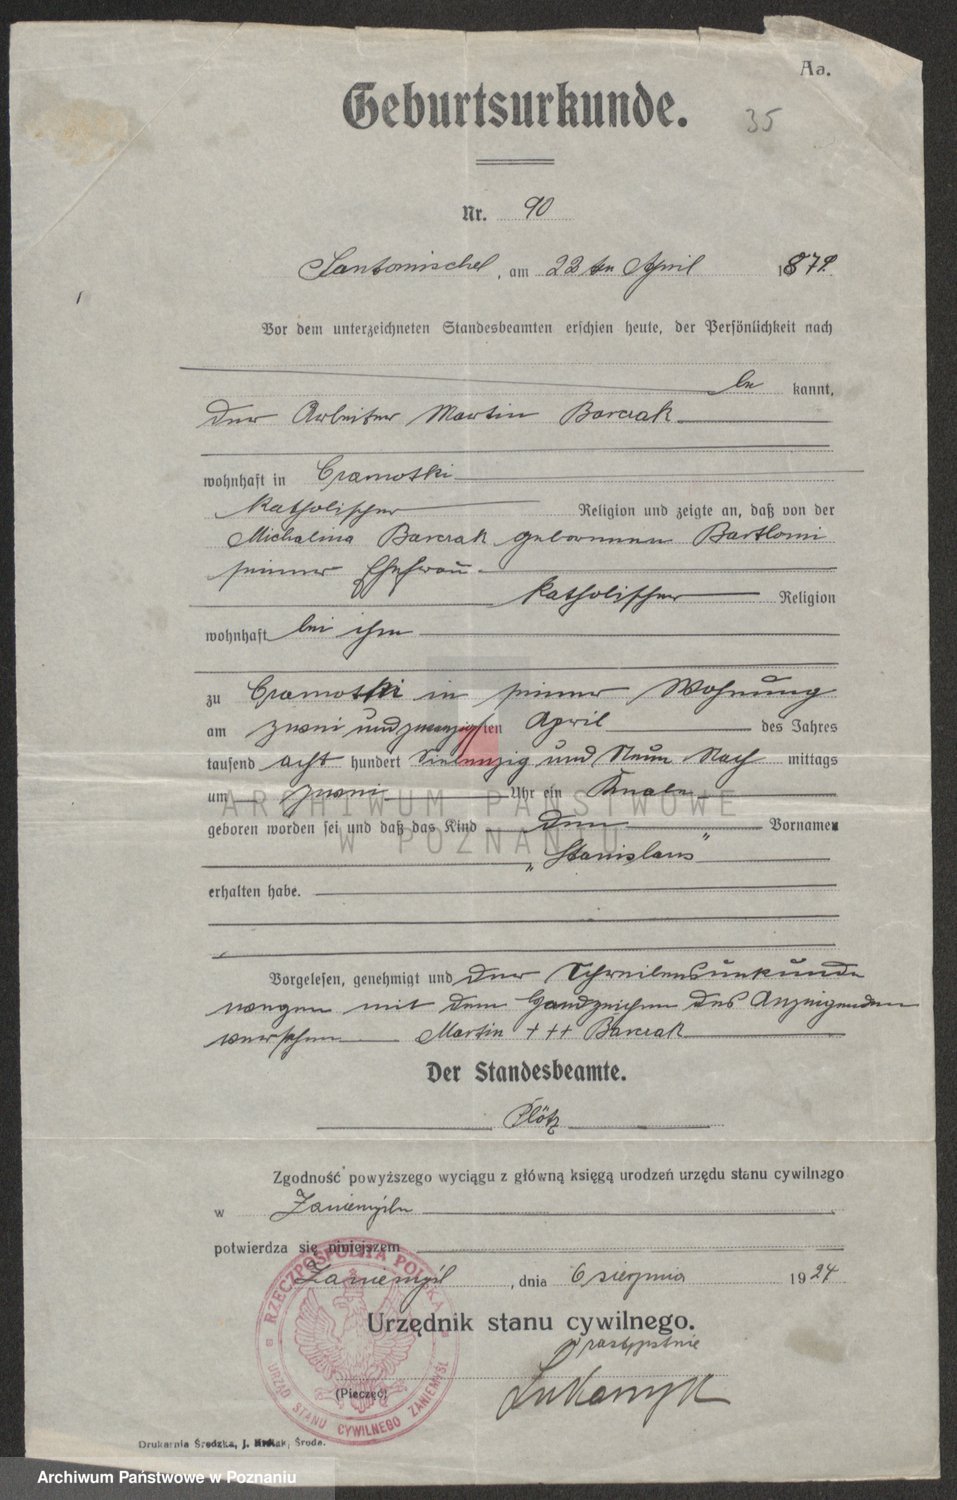 Aa.
Geburtsurkunde.
35
Nr. 90
Santomischel, am 22ten April 1879.
Vor dem unterzeichneten Standesbeamten erschien heute, der Persönlichkeit nach
be kannt,
der Arbeiter Martin Barczak
wohnhaft in
katholischer Religion und zeigte an, daß von der
Michalina Barczak geborenen Bartlomi
seiner Ehefrau
katholischer Religion
wohnhaft bei ihm
zu in seiner Wohnung
am zwei und zwanzigsten April des Jahres
tausend acht hundert siebenzig und Neun Nach mittags
um zwei Uhr ein Knabe
geboren worden sei und daß das Kind den Vornamen
„Stanislaus"
erhalten habe.
Vorgelesen, genehmigt und der Schreibensunkunde
wegen mit dem Handzeichen des Anzeigenden
versehen Martin + + + Barczak
Der Standesbeamte.
Plötz
Zgodność powyższego wyciągu z główną księgą urodzeń urzędu stanu cywilnego
w Zaniemyślu
potwierdza się niniejszem
Zaniemyśl, dnia 6 sierpnia 1924
Urzędnik stanu cywilnego.
w zastępstwie
(Pieczęć)
RZECZPOSPOLITA POLSKA
URZĄD STANU CYWILNEGO ZANIEMYŚL
Drukarnia Średzka, J. Środa.
ARCHIWUM PAŃSTWOWE
W POZNANIU
Archiwum Państwowe w Poznaniu